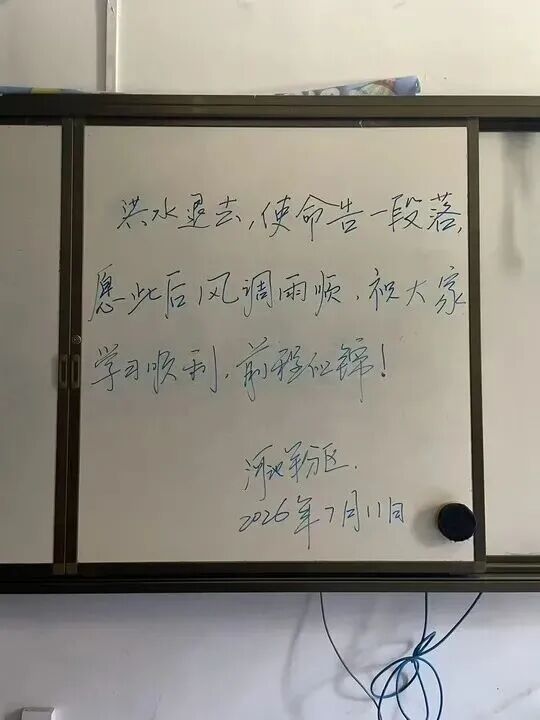 洪水退去,使命告一段落,
愿此后风调雨顺,祝大家
学习顺利,前程似锦!
河池军分区.
2026年7月11日